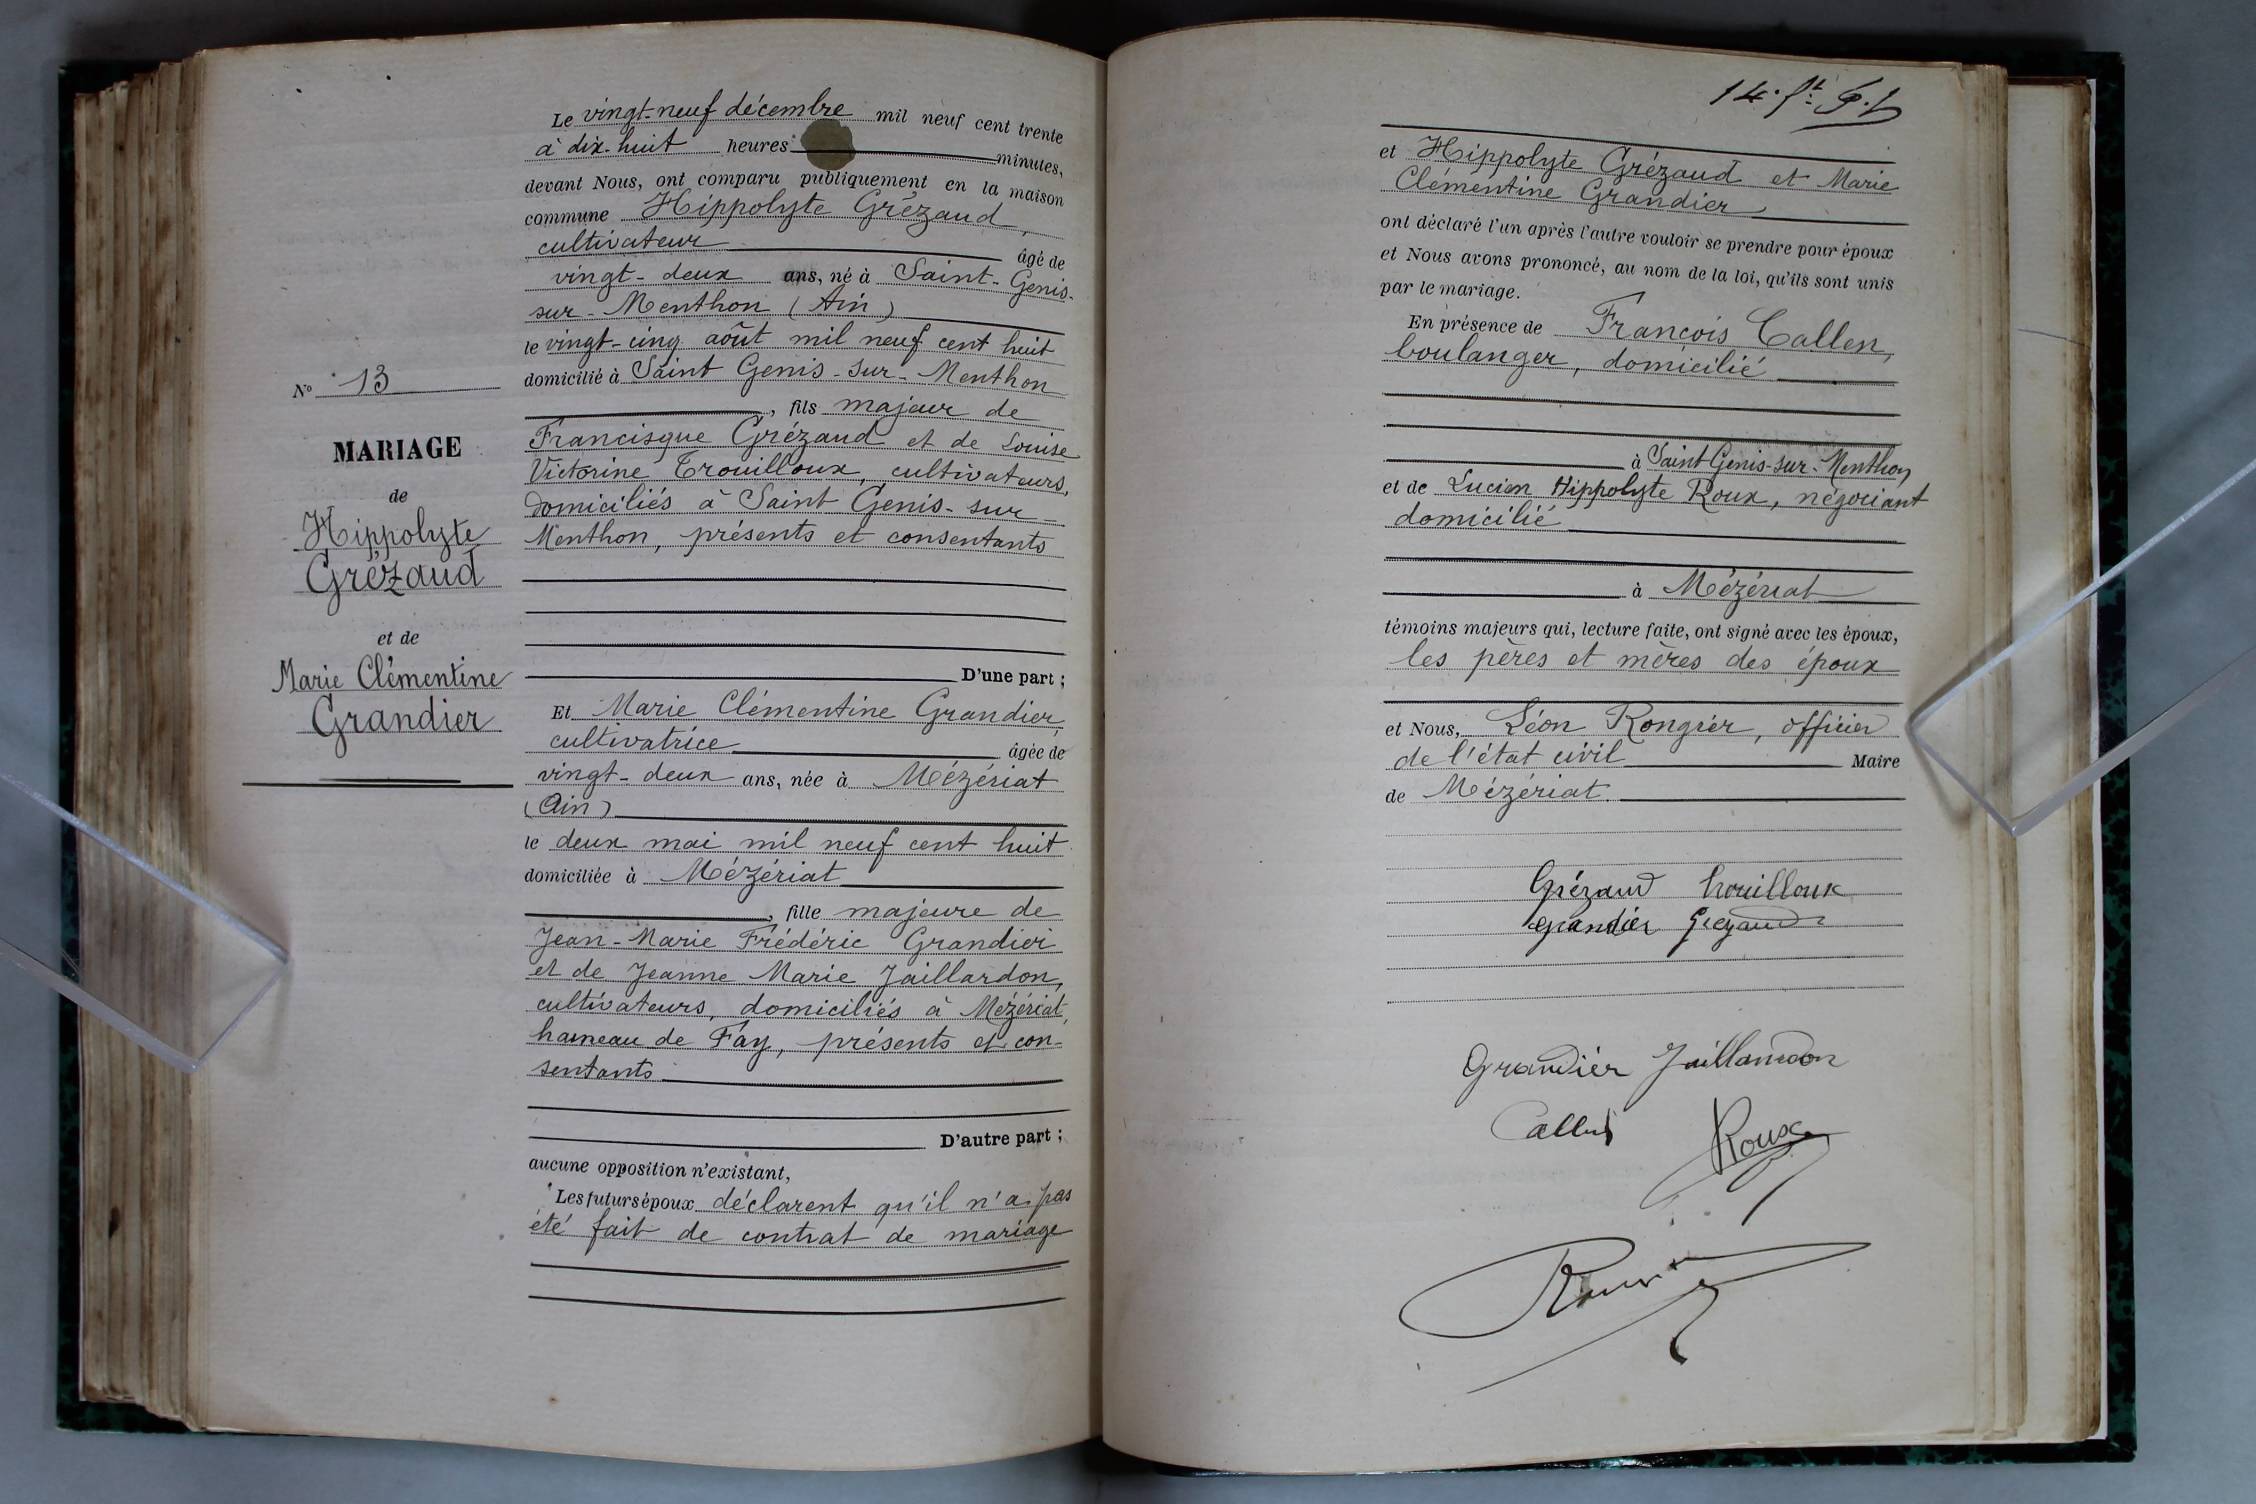 N° 13
MARIAGE
de
Hippolyte
Grézaud
et de
Marie Clémentine
Grandier
Le vingt-neuf décembre mil neuf cent trente
à dix-huit heures minutes,
devant Nous, ont comparu publiquement en la maison
commune Hippolyte Grézaud,
cultivateur âgé de
vingt-deux ans, né à Saint-Genis-
sur-Menthon (Ain)
le vingt-cinq août mil neuf cent huit
domicilié à Saint Genis-sur-Menthon
, fils majeur de
Francisque Grézaud et de Louise
Victorine Trouilloux, cultivateurs,
domiciliés à Saint Genis-sur-
Menthon, présents et consentants
D'une part ;
Et Marie Clémentine Grandier,
cultivatrice âgée de
vingt-deux ans, née à Mézériat
(Ain)
le deux mai mil neuf cent huit
domiciliée à Mézériat
, fille majeure de
Jean-Marie Frédéric Grandier
et de Jeanne Marie Jaillardon,
cultivateurs, domiciliés à Mézériat,
hameau de Fay, présents et con-
sentants
D'autre part ;
aucune opposition n'existant,
Les futurs époux déclarent qu'il n'a pas
été fait de contrat de mariage
14.
et Hippolyte Grézaud et Marie
Clémentine Grandier
ont déclaré l'un après l'autre vouloir se prendre pour époux
et Nous avons prononcé, au nom de la loi, qu'ils sont unis
par le mariage.
En présence de François Callen,
boulanger, domicilié
à Saint Genis-sur-Menthon,
et de Lucien Hippolyte Roux, négociant
domicilié
à Mézériat
témoins majeurs qui, lecture faite, ont signé avec les époux,
les pères et mères des époux
et Nous, Léon Rongier, officier
de l'état civil Maire
de Mézériat.
Grézaud Trouilloux
Grandier Grezaud
Grandier Jaillardon
Callen
Roux